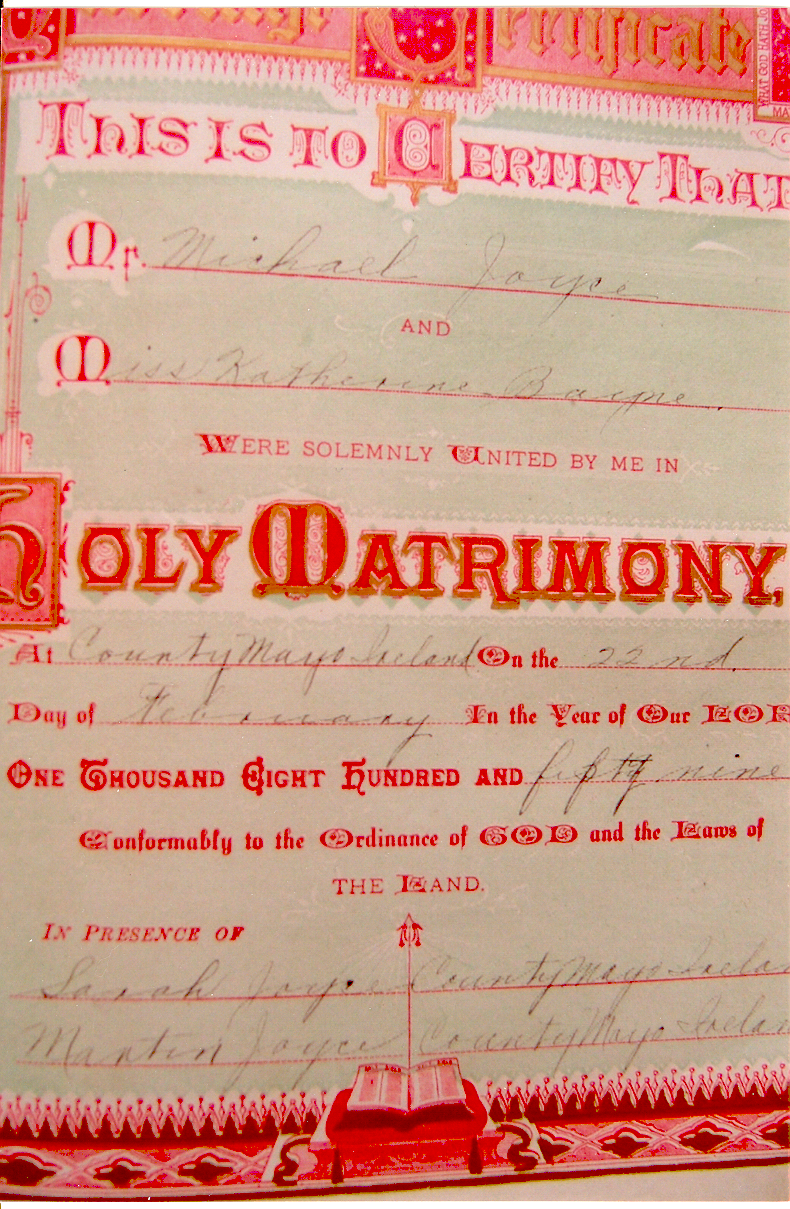 Marriage Certificate
WHAT GOD HATH JO
MA
THIS IS TO CERTIFY THAT
Mr. Michael Joyce
AND
Miss Katherine Bayne.
WERE SOLEMNLY UNITED BY ME IN
HOLY MATRIMONY,
At County Mayo Ireland On the 22nd.
Day of February In the Year of Our LOR
ONE THOUSAND EIGHT HUNDRED AND fifty nine
Conformably to the Ordinance of GOD and the Laws of
THE LAND.
IN PRESENCE OF
Sarah Joyce County Mayo Irelan
Martin Joyce County Mayo Irelan
HOLY BIBLE